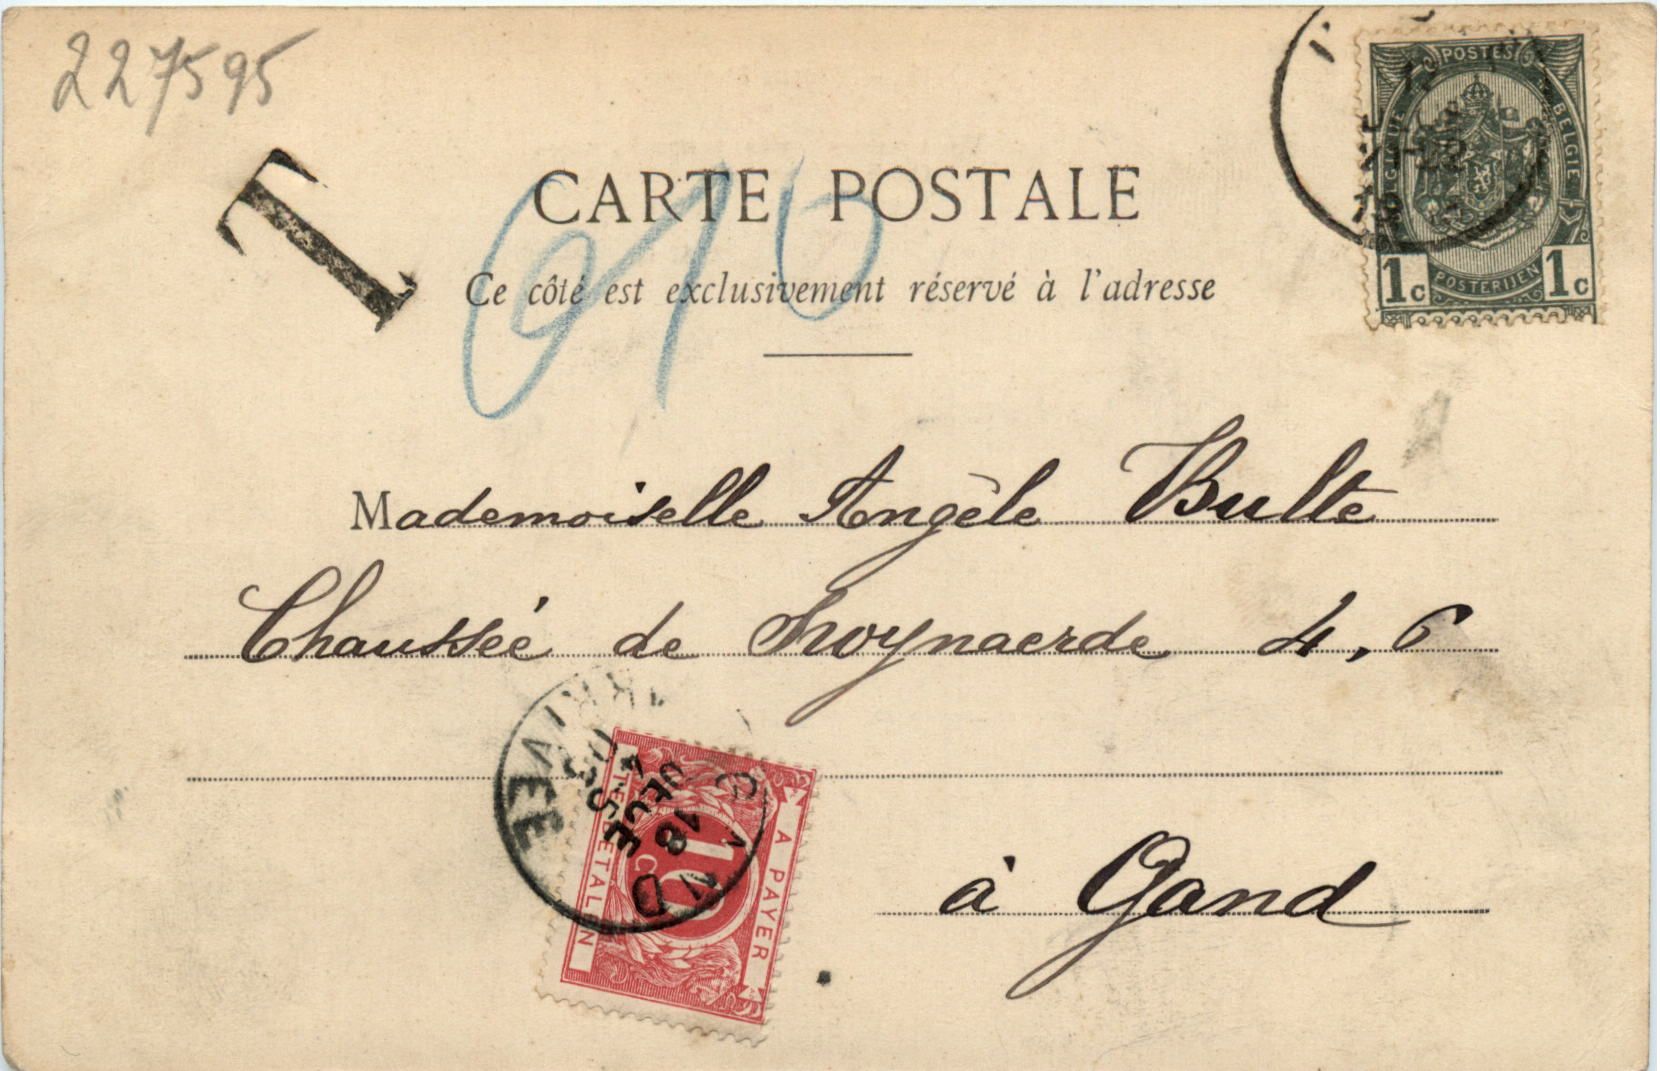 227595
T
CARTE POSTALE
Ce côté est exclusivement réservé à l'adresse
POSTES
BELGIQUE BELGIE
POSTERIJEN
1c 1c
Mademoiselle Angèle Bulte
Chaussée de Swynaerde 4, 6
à Gand
A PAYER
TE BETALEN
10 C
ARRIVEE
18
DECE